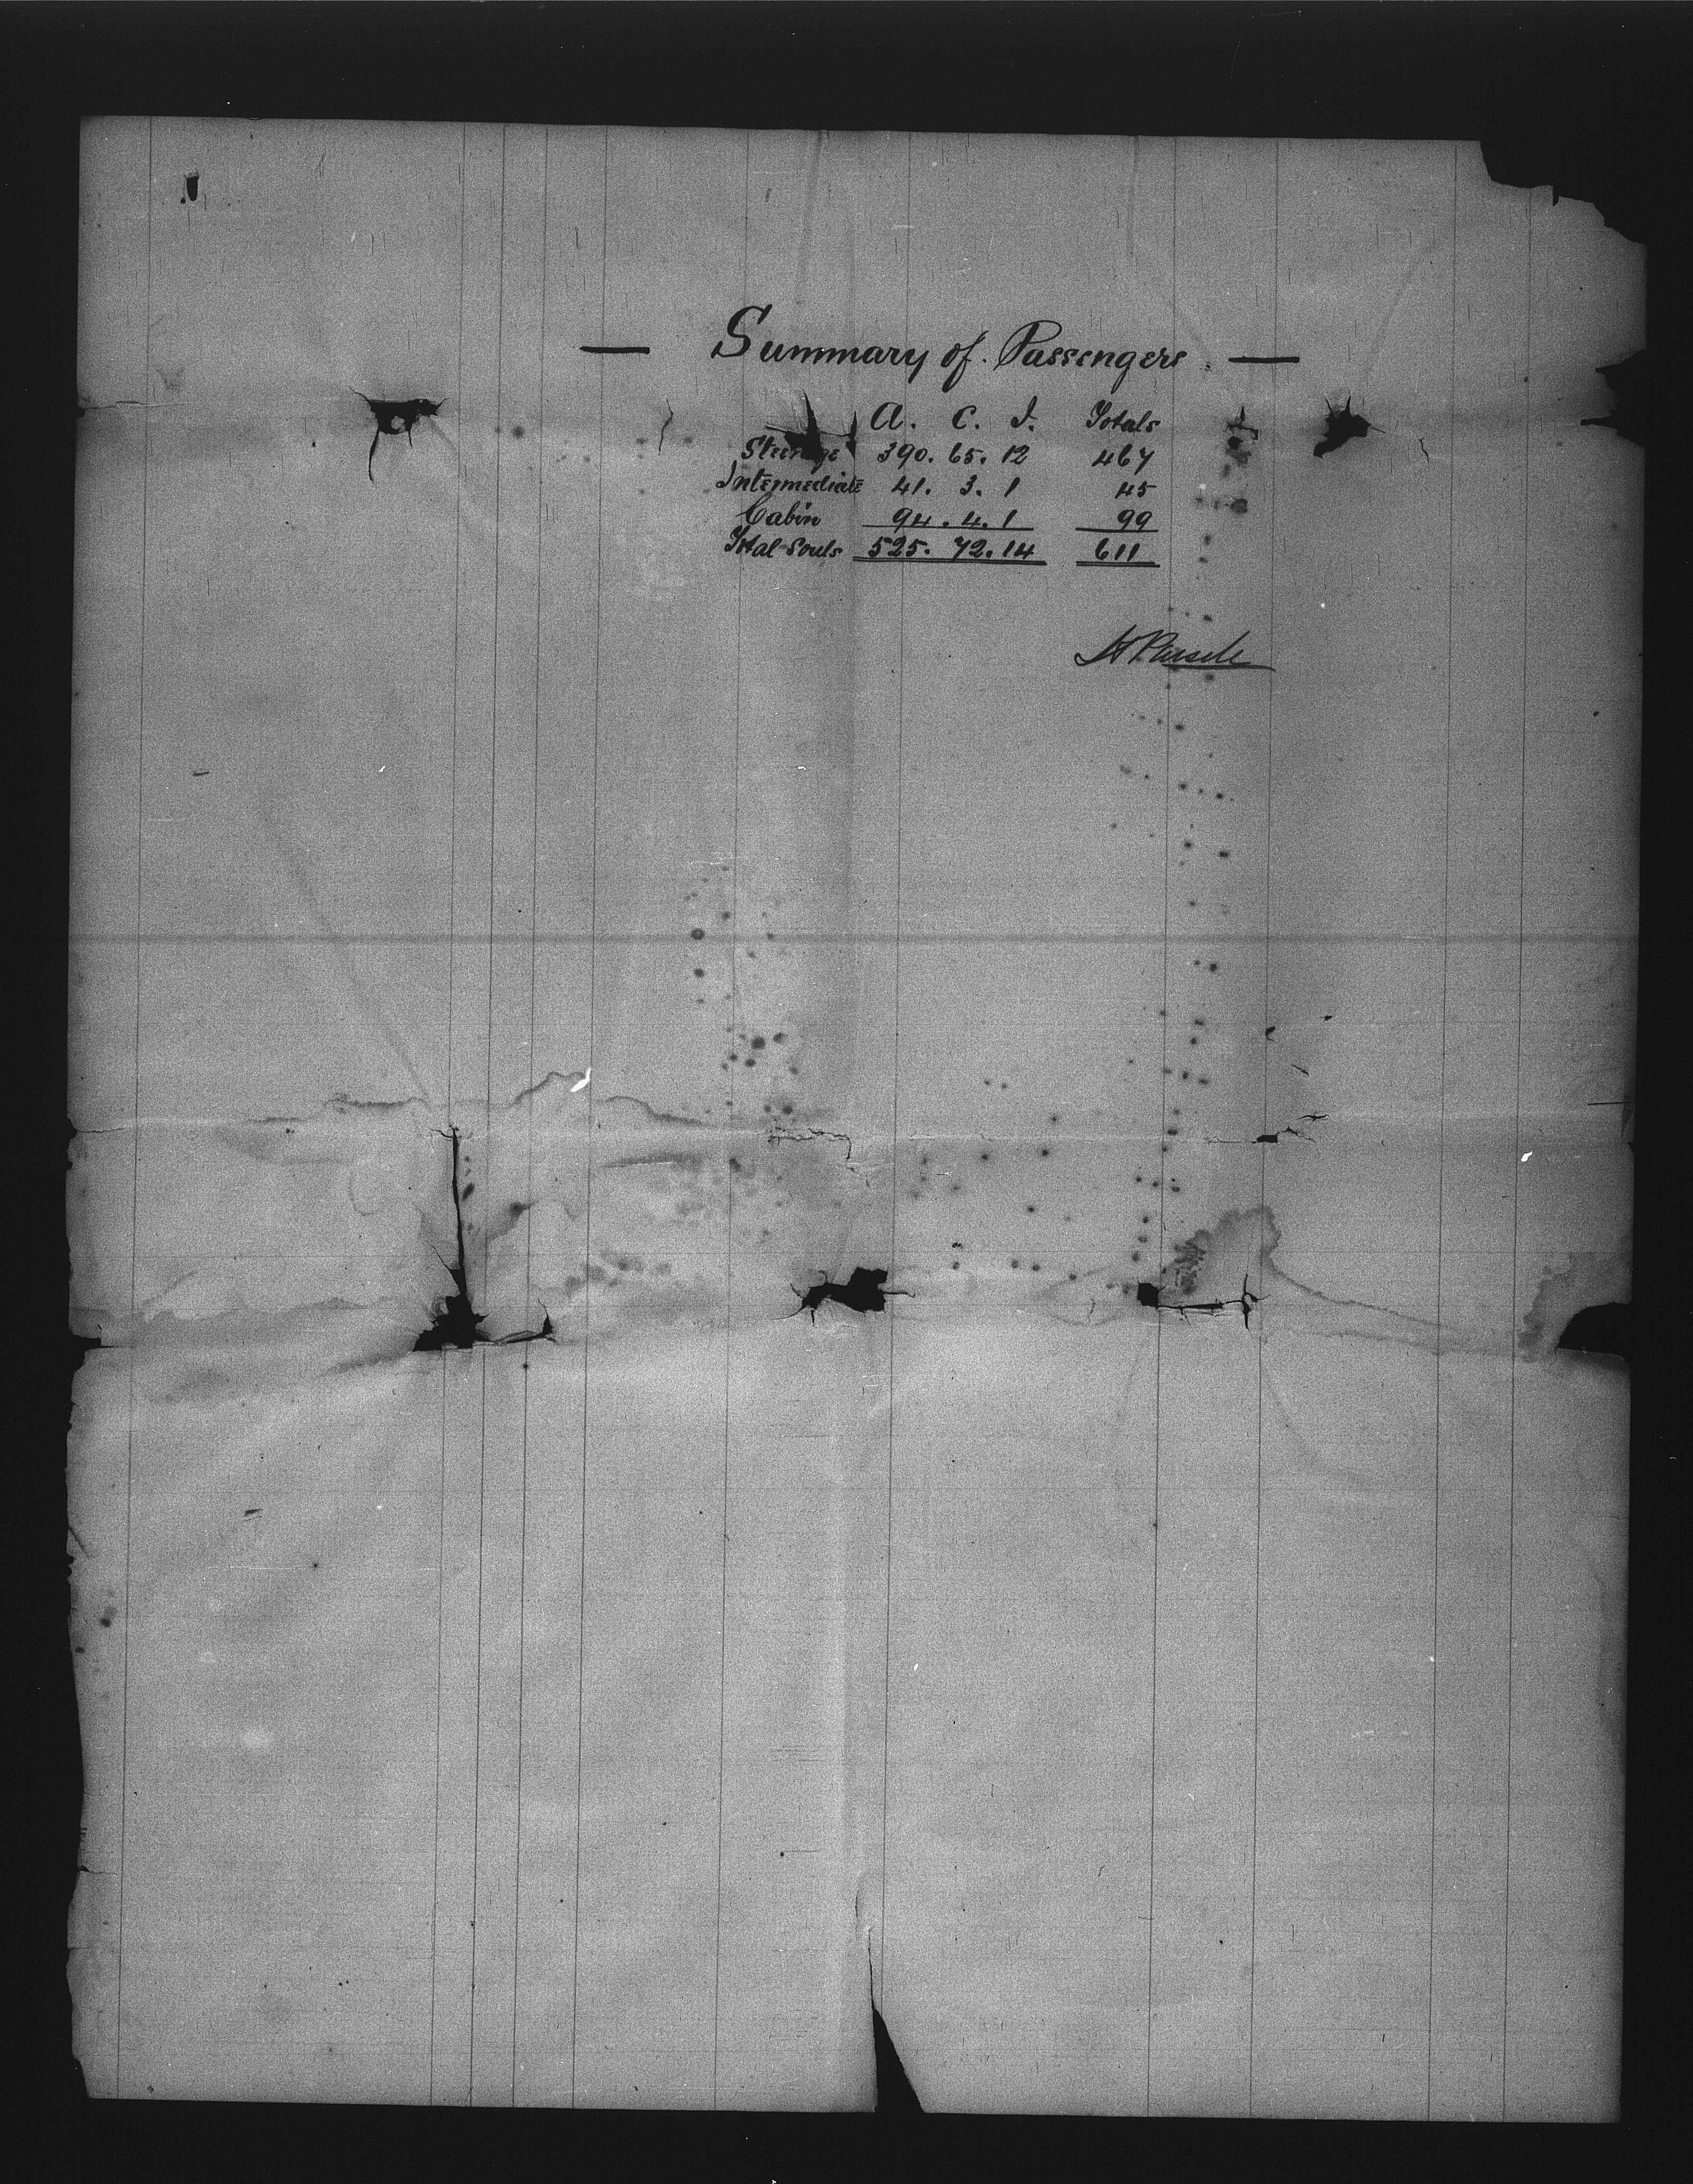 — Summary of Passengers. —
A. C. I. Totals
Steerage 390. 65. 12 467
Intermediate 41. 3. 1 45
Cabin 94. 4. 1 99
Total Souls 525. 72. 14 611